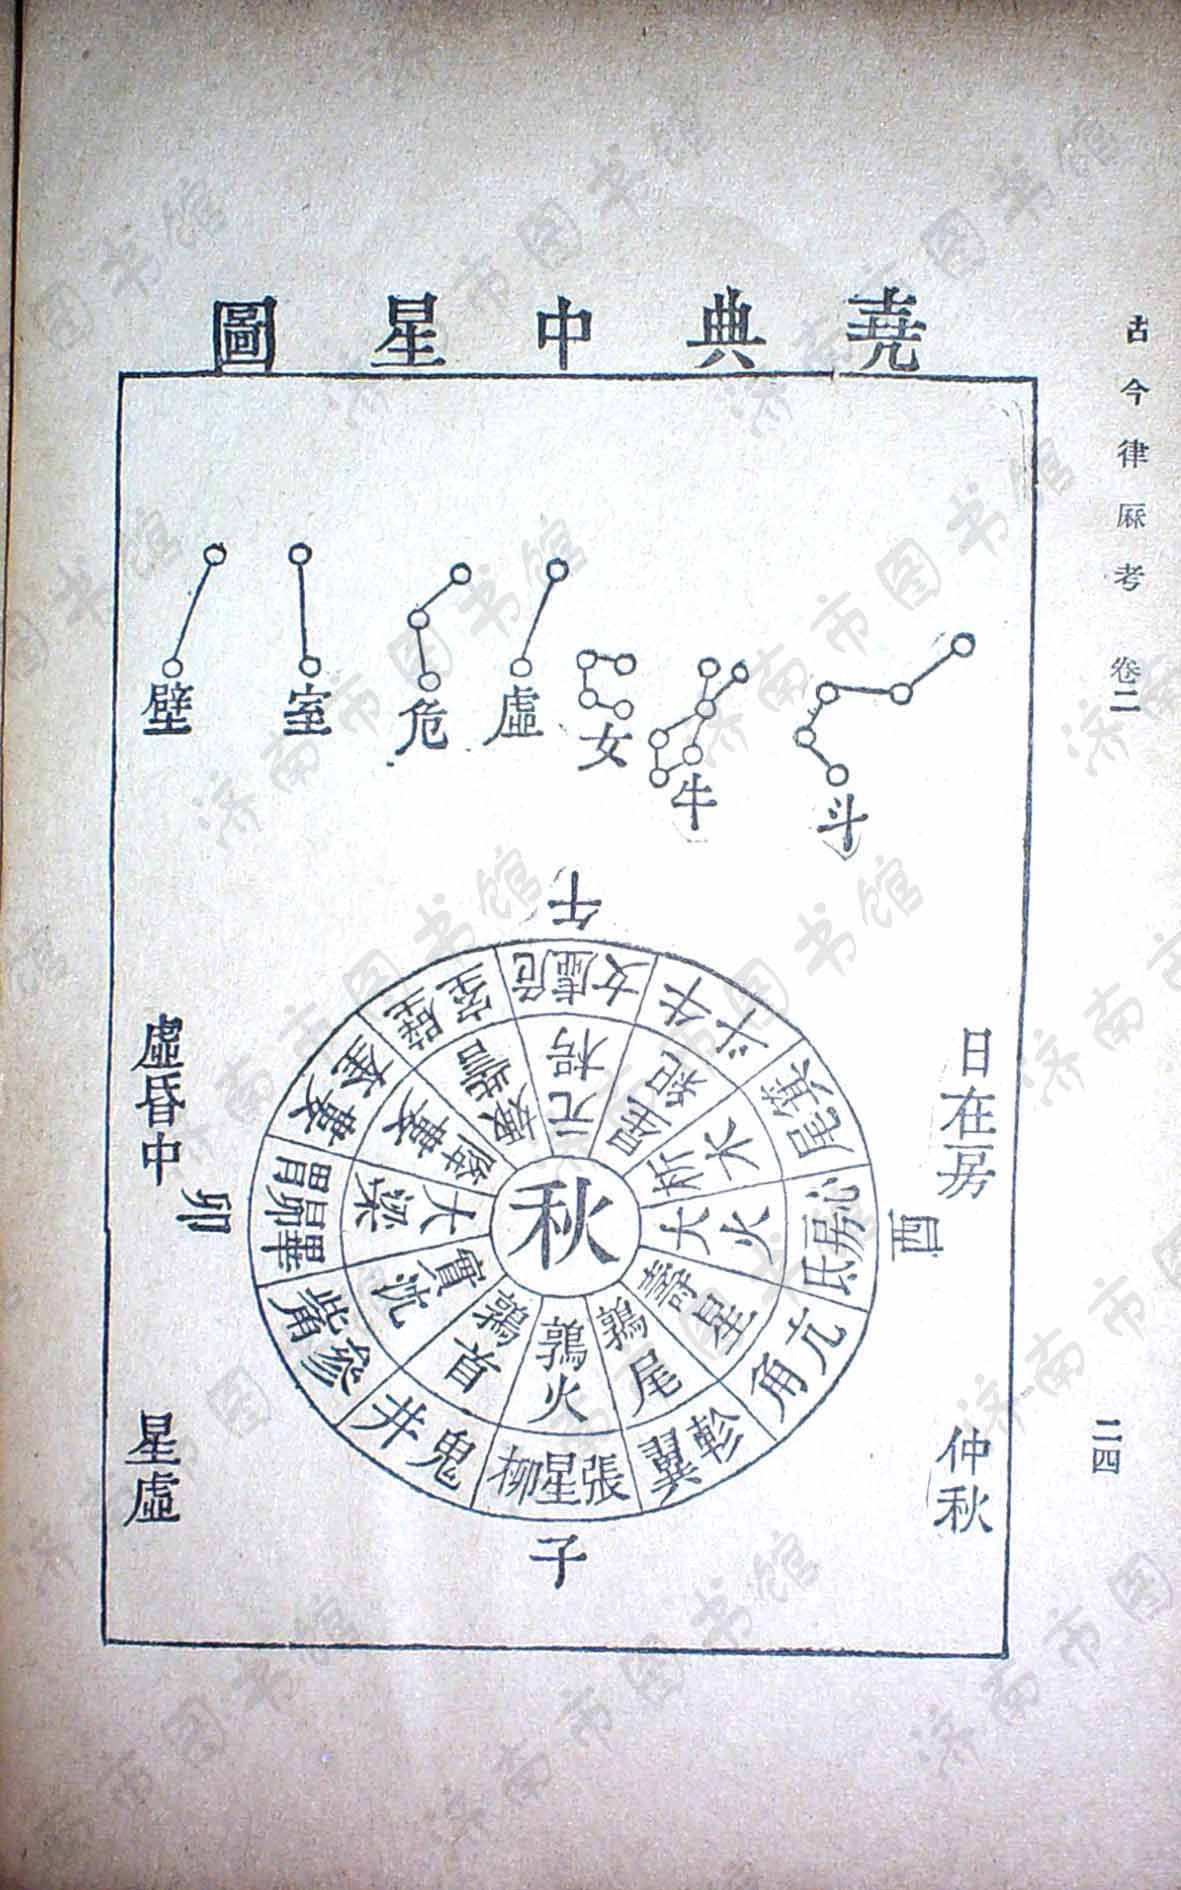 古今律厤考 卷二
二四
堯典中星圖
斗
牛
女
虛
危
室
壁
日在房
仲秋
午
酉
子
卯
虛昏中
星虛
秋
元枵
星紀
析木
大火
壽星
鶉尾
鶉火
鶉首
實沈
大梁
降婁
娵訾
女虛危
斗牛
尾箕
氐房心
角亢
翼軫
柳星張
井鬼
觜參
胃昴畢
奎婁
室壁
济南市图书馆